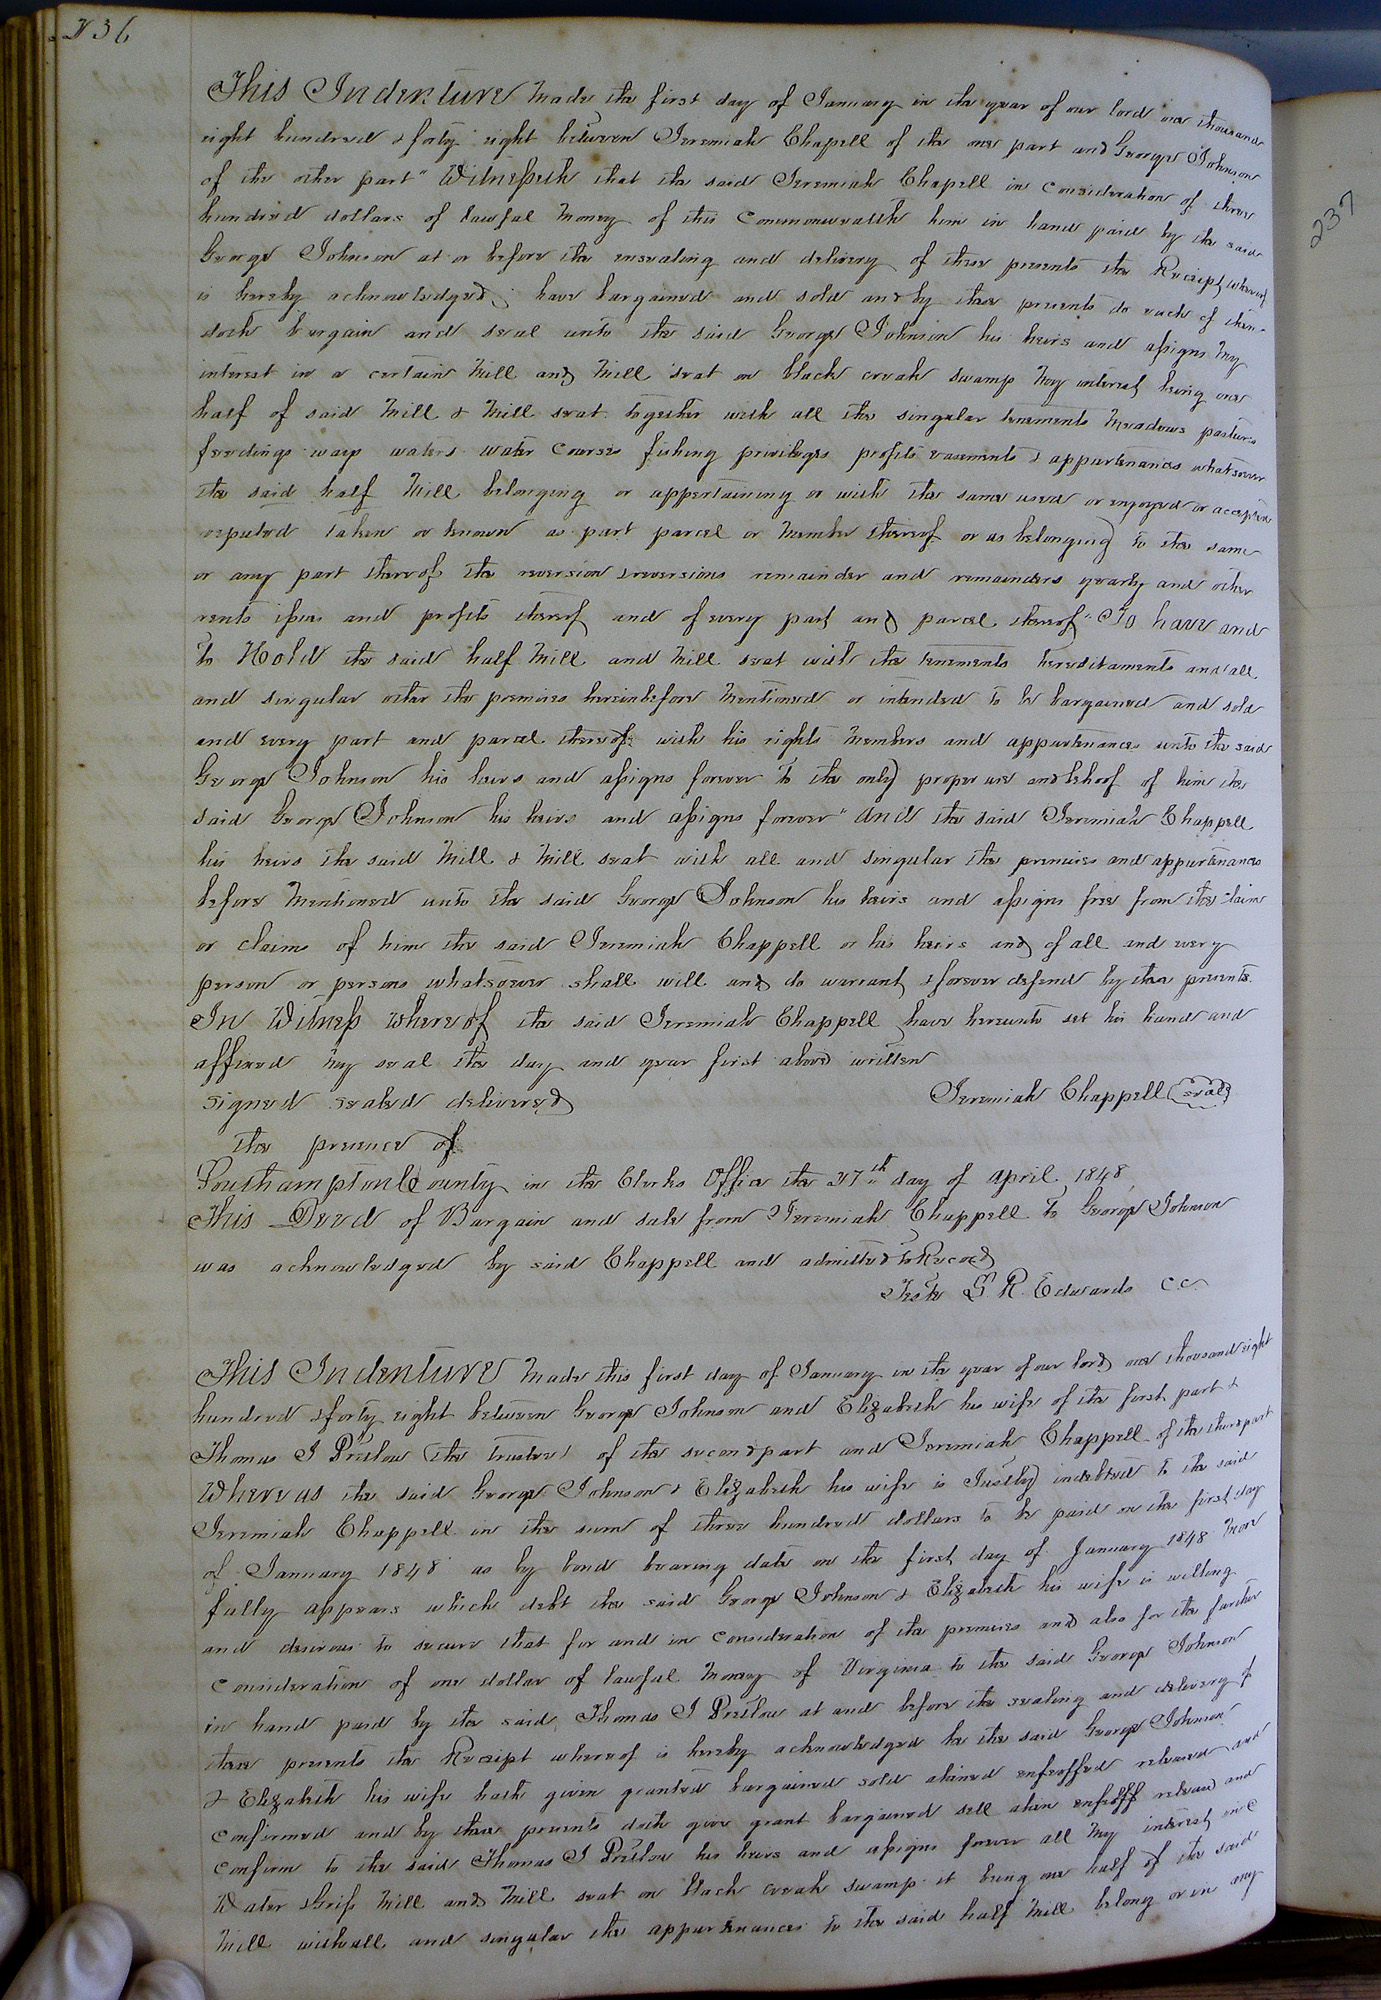 236
This Indenture Made the first day of January in the year of our lord one thousand
eight hundred & forty eight between Jeremiah Chapell of the one part and George Johnson
of the other part" Witnesseth that the said Jeremiah Chapell in Consideration of three
hundred dollars of lawful Money of this Commonwealth him in hand paid by the said
George Johnson at or before the ensealing and delivery of these presents the Receipt whereof
is hereby acknowledged; have bargained and sold and by these presents do each of them
doth bargain and seal unto the said George Johnson his heirs and assigns My
interest in a certain Mill and Mill seat on black creak swamp My interest being one
half of said Mill & Mill seat together with all the singular tenements Meadows pastures
feedings ways waters water Courses fishing privileges profits easements & appurtenances whatsoever
the said half Mill belonging or appertaining or with the same used or enjoyed or accepted
reputed taken or known as part parcel or Member thereof or as belonging to the same
or any part thereof the reversion & reversions remainder and remainders yearly and other
rents issues and profits thereof and of every part and parcel thereof" To have and
to Hold the said half Mill and Mill seat with the tenements hereditaments and all
and singular other the premises hereinbefore Mentioned or intended to be bargained and sold
and every part and parcel thereof with his rights Members and appurtenances unto the said
George Johnson his heirs and assigns forever to the only proper use and behoof of him the
said George Johnson his heirs and assigns forever" And the said Jeremiah Chappell
his heirs the said Mill & Mill seat with all and singular the premises and appurtenances
before Mentioned unto the said George Johnson his heirs and assigns free from the claim
or claims of him the said Jeremiah Chappell or his heirs and of all and every
person or persons whatsoever shall will and do warrant & forever defend by these presents.
In Witness whereof the said Jeremiah Chappell have hereunto set his hand and
affixed my seal the day and year first above written
Signed sealed delivered Jeremiah Chappell (seal)
the presence of
Southampton County in the Clerks Office the 27th day of April 1848
This Deed of Bargain and sale from Jeremiah Chappell to George Johnson
was acknowledged by said Chappell and admitted to Record
Teste L R. Edwards C.C.
This Indenture Made this first day of January in the year of our lord one thousand eight
hundred & forty eight between George Johnson and Elizabeth his wife of the first part &
Thomas J Pretlow (the trustee) of the second part and Jeremiah Chappell of the third part
Whereas the said George Johnson & Elizabeth his wife is Justly indebted to the said
Jeremiah Chappell in the sum of three hundred dollars to be paid on the first day
of January 1848 as by bond bearing date on the first day of January 1848 More
fully appears which debt the said George Johnson & Elizabeth his wife is willing
and desirous to secure that for and in Consideration of the premises and also for the further
Consideration of one dollar of lawful Money of Virginia to the said George Johnson
in hand paid by the said Thomas J Pretlow at and before the sealing and delivery of
these presents the Receipt whereof is hereby acknowledged he the said George Johnson
& Elizabeth his wife hath given granted bargained sold aliened enfeoffed released and
Confirmed and by these presents doth give grant bargained sell alien enfeoff release and
Confirm to the said Thomas J Pretlow his heirs and assigns forever all My interest in
Water Griss Mill and Mill seat on black creak swamp it being one half of the said
Mill with all and singular the appurtenances to the said half Mill belong or in any
237